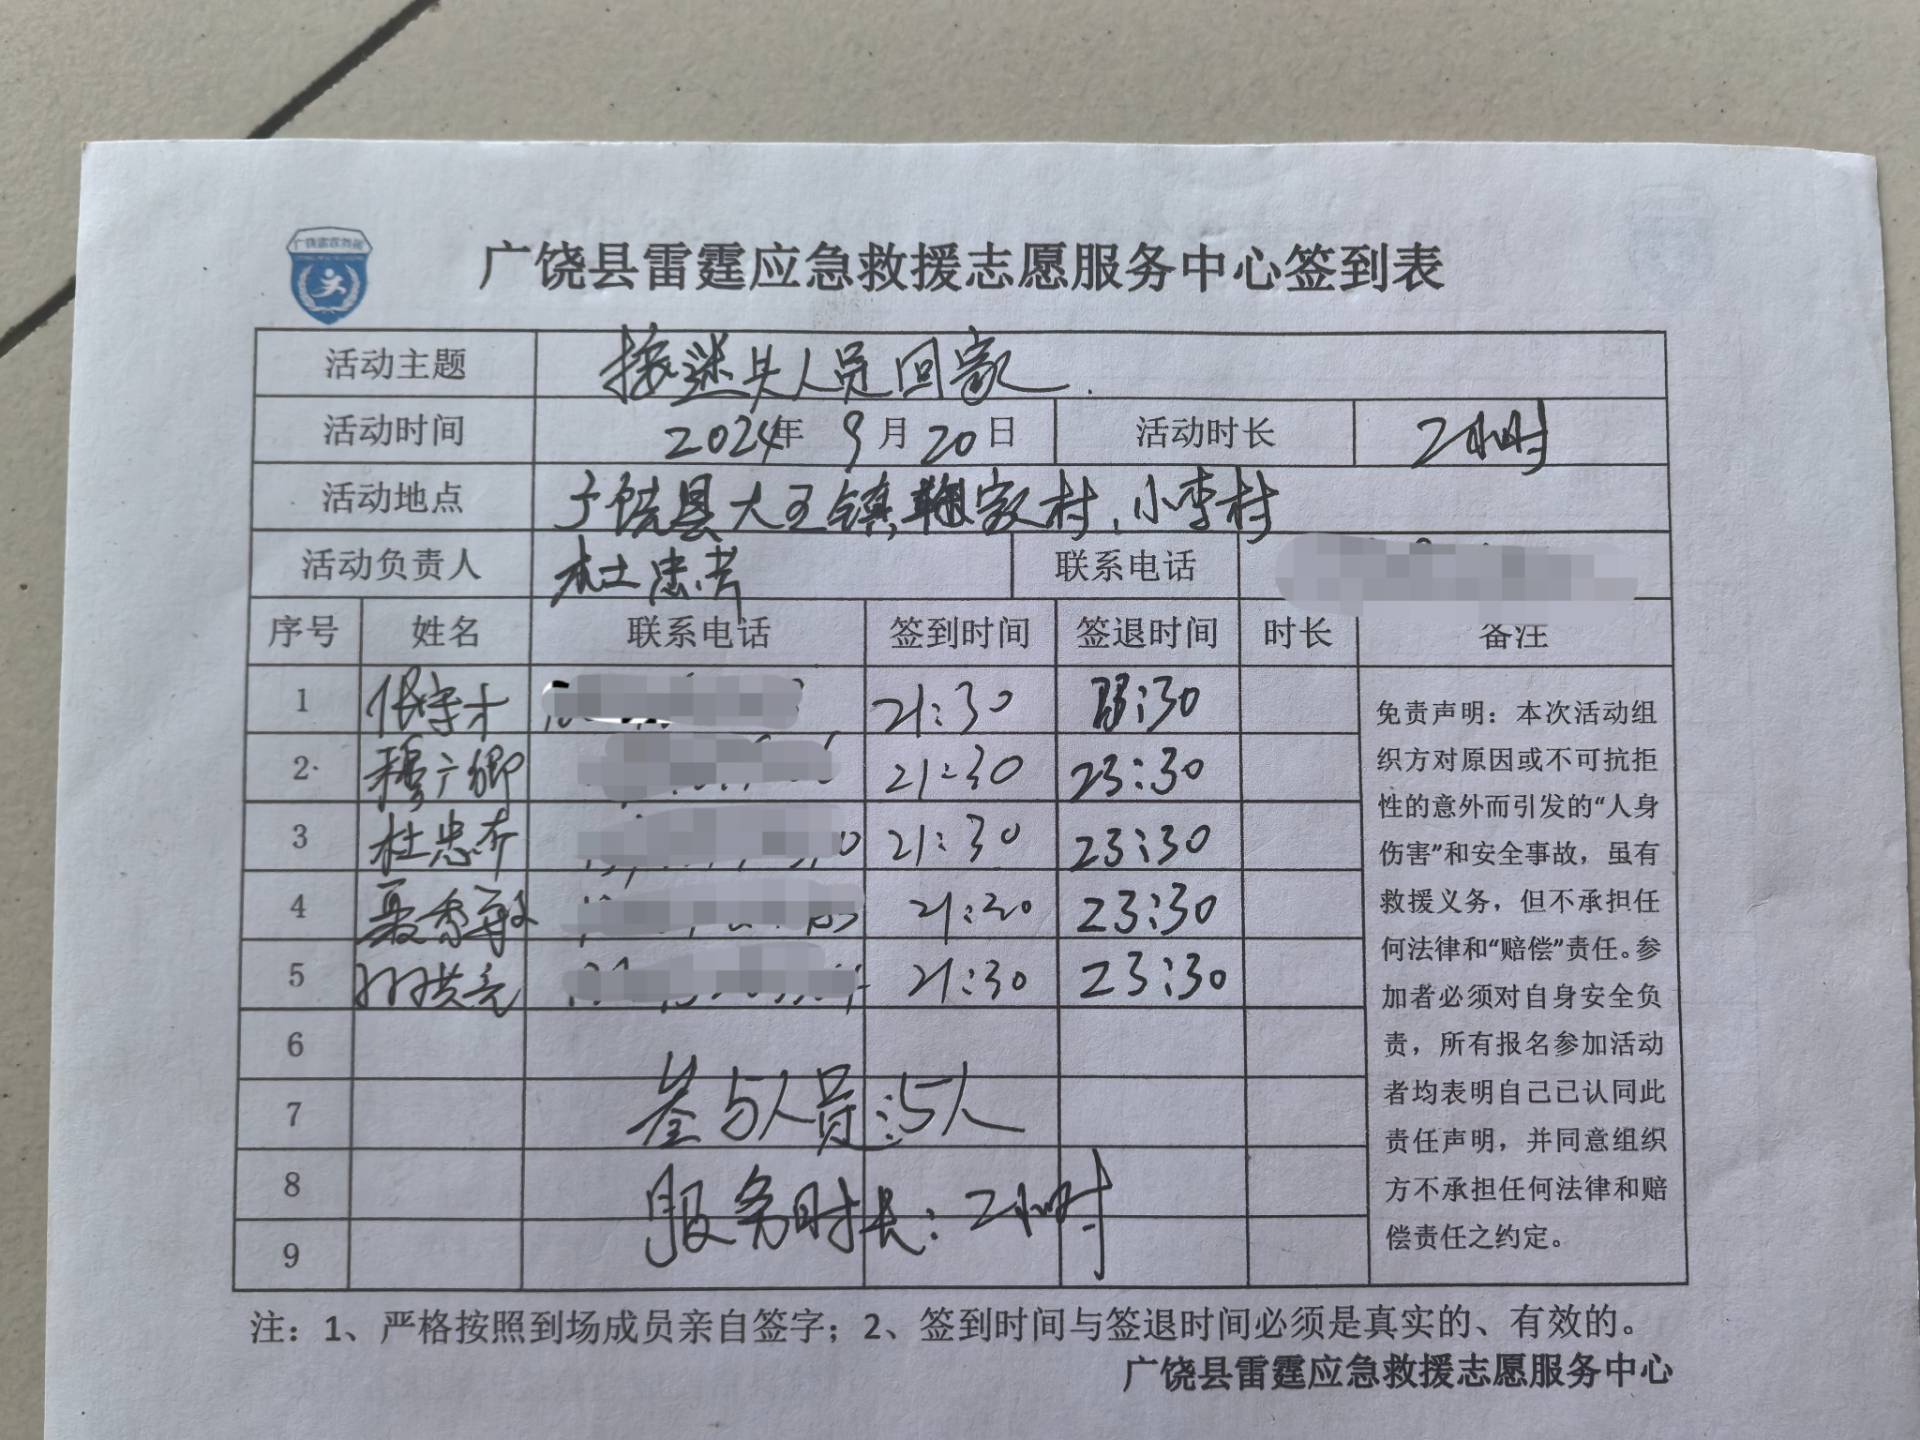 广饶县雷霆应急救援志愿服务中心签到表
活动主题 接迷失人员回家
活动时间 2024年 9月20日 活动时长 2小时
活动地点 广饶县大王镇,鞠家村,小李村
活动负责人 杜忠 联系电话
序号 姓名 联系电话 签到时间 签退时间 时长 备注
1 21:30 :30
2 穆广卿 21:30 23:30
3 杜忠 21:30 23:30
4 聂秀敏 21:30 23:30
5 洪亮 21:30 23:30
6
7 参与人员:5人
8 服务时长:2小时
9
免责声明：本次活动组
织方对原因或不可抗拒
性的意外而引发的“人身
伤害”和安全事故，虽有
救援义务，但不承担任
何法律和“赔偿”责任。参
加者必须对自身安全负
责，所有报名参加活动
者均表明自己已认同此
责任声明，并同意组织
方不承担任何法律和赔
偿责任之约定。
注：1、严格按照到场成员亲自签字；2、签到时间与签退时间必须是真实的、有效的。
广饶县雷霆应急救援志愿服务中心